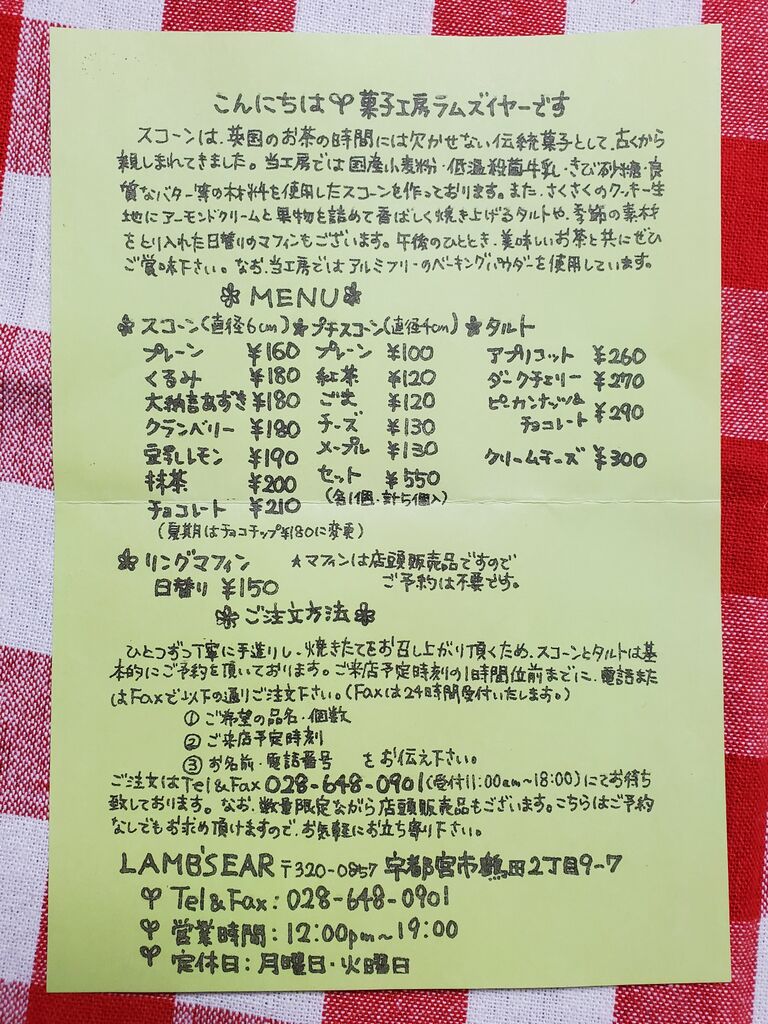 こんにちは 菓子工房ラムズイヤーです
スコーンは、英国のお茶の時間には欠かせない伝統菓子として、古くから
親しまれてきました。当工房では国産小麦粉・低温殺菌牛乳・きび砂糖・良
質なバター等の材料を使用したスコーンを作っております。また、さくさくのクッキー生
地にアーモンドクリームと果物を詰めて香ばしく焼き上げるタルトや、季節の素材
をとり入れた日替りのマフィンもございます。午後のひととき、美味しいお茶と共にぜひ
ご賞味下さい。なお、当工房ではアルミフリーのベーキングパウダーを使用しています。
MENU
スコーン(直径6cm) プチスコーン(直径4cm) タルト
プレーン ¥160 プレーン ¥100 アプリコット ¥260
くるみ ¥180 紅茶 ¥120 ダークチェリー ¥270
大納言あずき ¥180 ごま ¥120 ピーカンナッツ&
チョコレート ¥290
クランベリー ¥180 チーズ ¥130
豆乳レモン ¥190 メープル ¥130 クリームチーズ ¥300
抹茶 ¥200 セット ¥550
チョコレート ¥210 (各1個・計5個入)
(夏期はチョコチップ¥180に変更)
リングマフィン ★マフィンは店頭販売品ですので
日替り ¥150 ご予約は不要です。
ご注文方法
ひとつずつ丁寧に手造りし、焼きたてをお召し上がり頂くため、スコーンとタルトは基
本的にご予約を頂いております。ご来店予定時刻の1時間位前までに、電話また
はFaxで以下の通りご注文下さい。(Faxは24時間受付いたします。)
① ご希望の品名・個数
② ご来店予定時刻
③ お名前・電話番号 をお伝え下さい。
ご注文はTel&Fax 028-648-0901(受付11:00am~18:00)にてお待ち
致しております。なお、数量限定ながら店頭販売品もございます。こちらはご予約
なしでもお求め頂けますので、お気軽にお立ち寄り下さい。
LAMB'S EAR 〒320-0857 宇都宮市鶴田2丁目9-7
Tel&Fax: 028-648-0901
営業時間: 12:00pm~19:00
定休日: 月曜日・火曜日